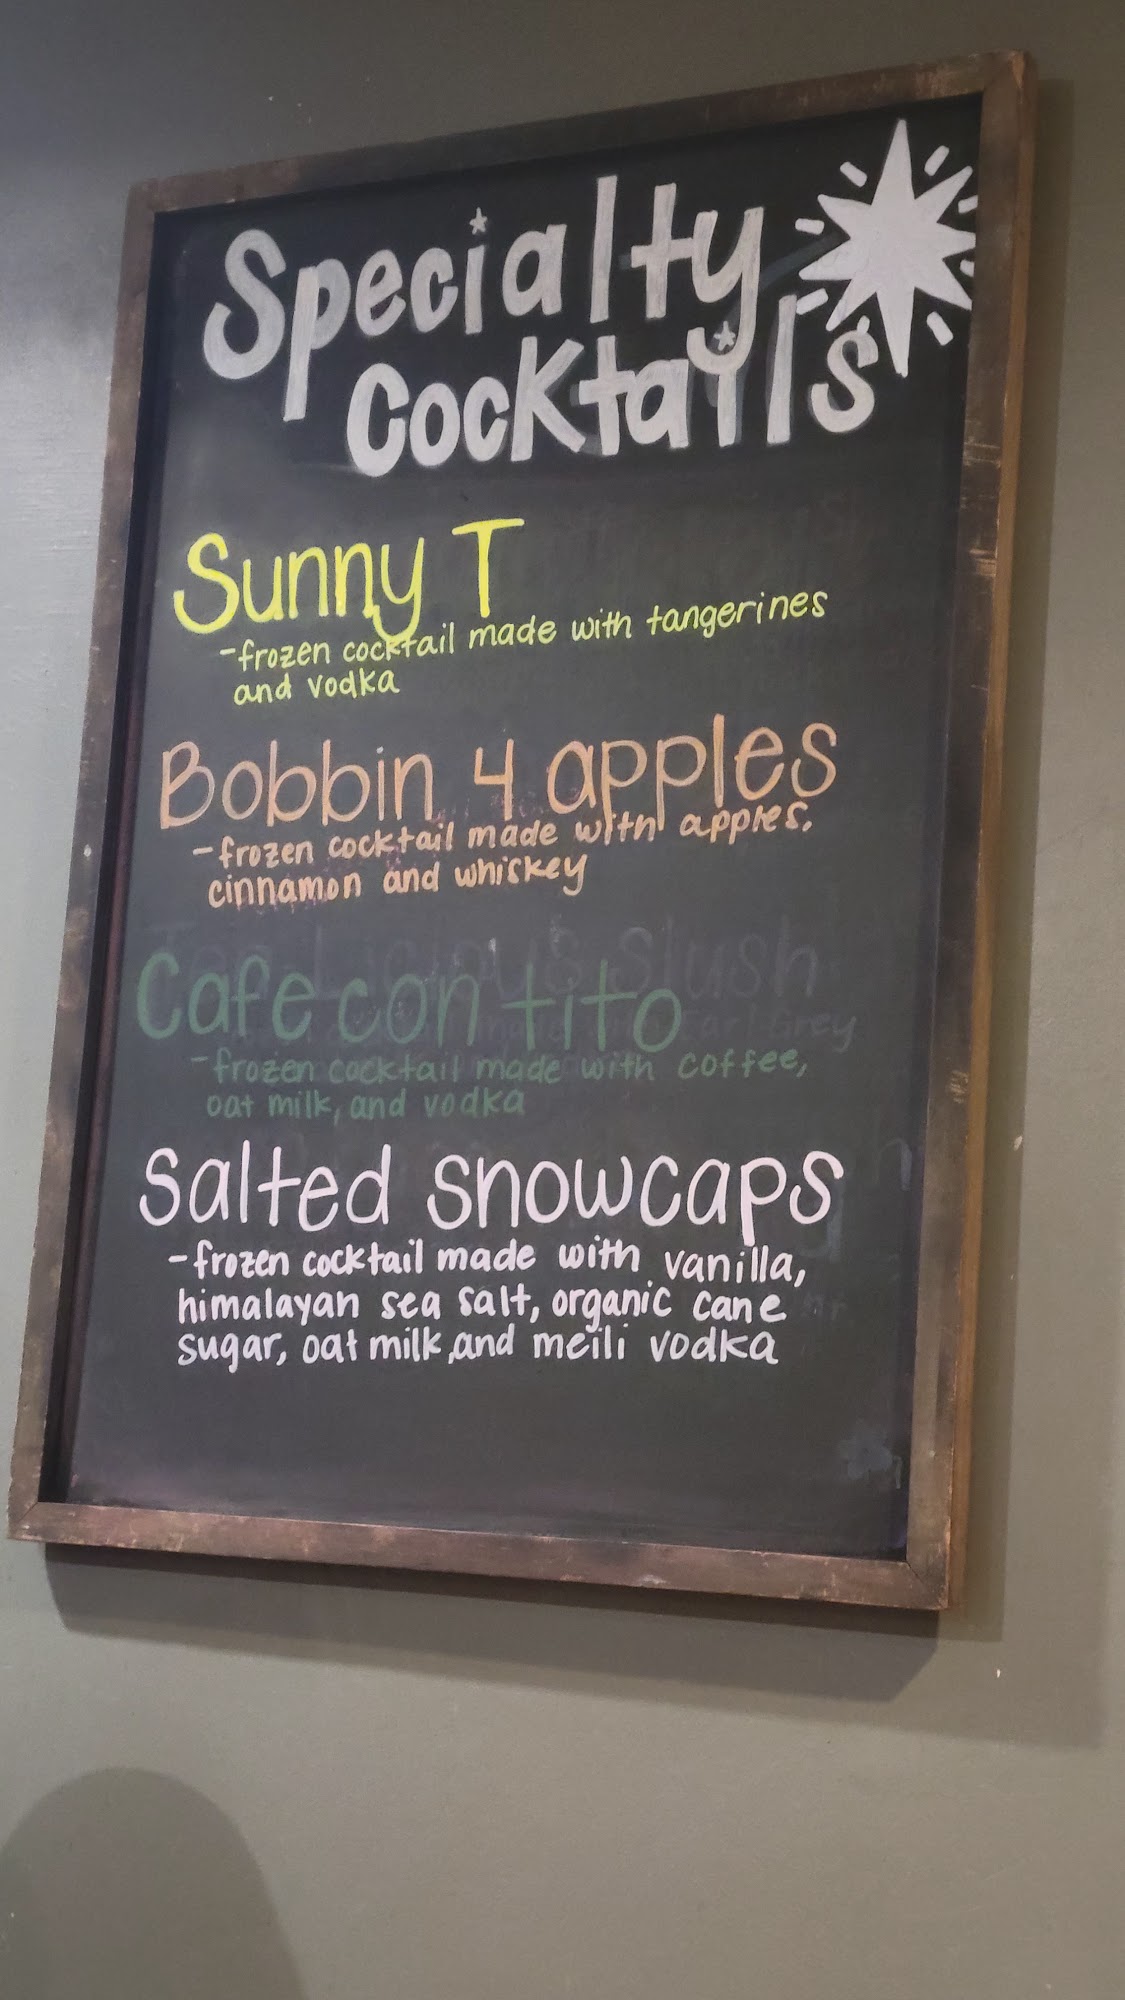 Specialty
Cocktails
Sunny T
-frozen cocktail made with tangerines
and vodka
Bobbin 4 apples
-frozen cocktail made with apples,
cinnamon and whiskey
Licious Slush
Cafe con tito
Earl Grey
-frozen cocktail made with coffee,
oat milk, and vodka
Salted Snowcaps
-frozen cocktail made with vanilla,
himalayan sea salt, organic cane
sugar, oat milk, and meili vodka